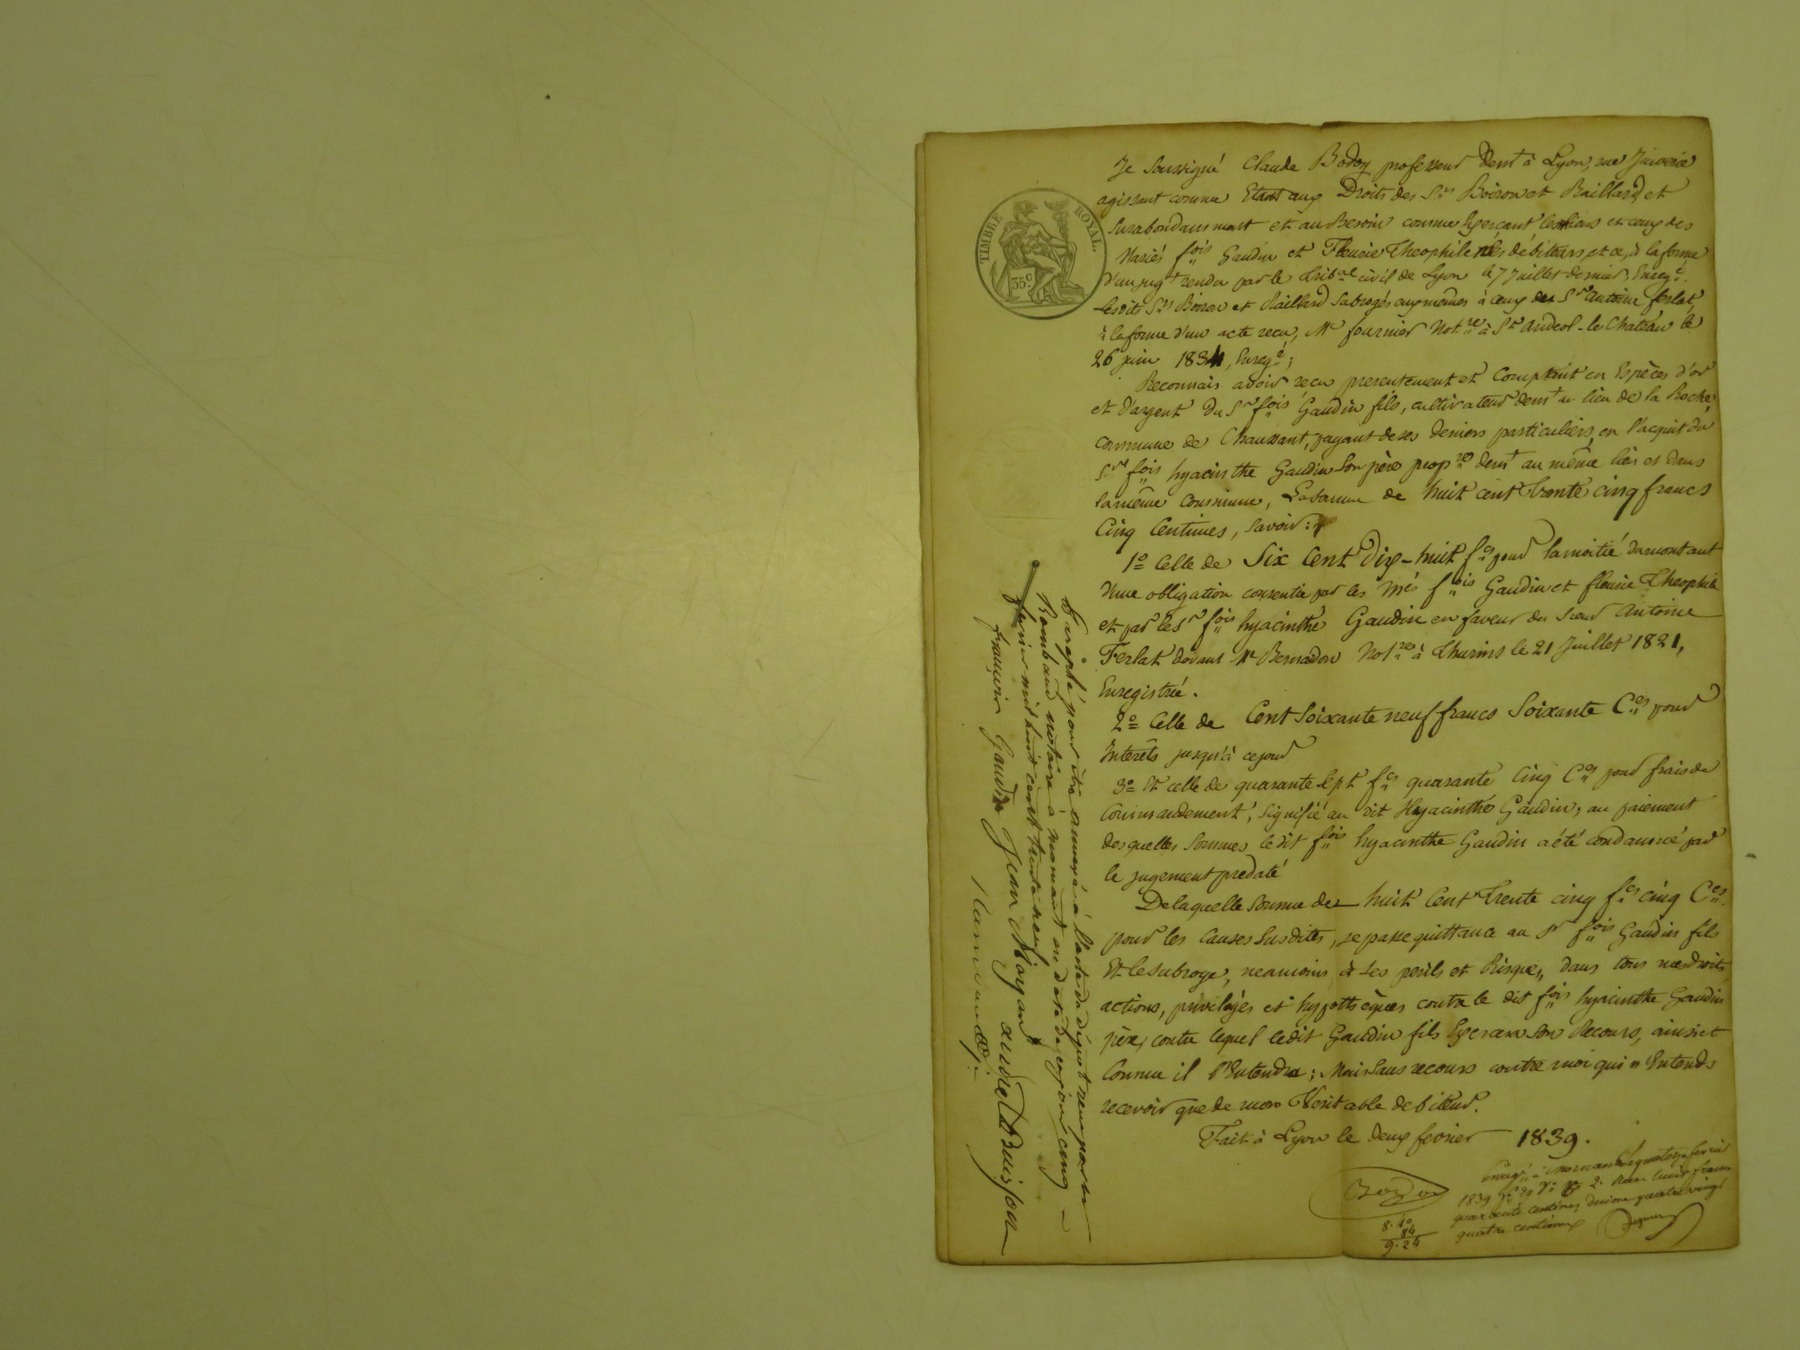 TIMBRE ROYAL.
35c
Je soussigné Claude Bodoy professeur demt à Lyon, rue Juiverie
agissant comme Etant aux Droits des Srs Boiron et Raillard et
surabondamment et au Besoin comme Exerçant les siens et ceux des
Mariés fois Gaudin et Fleurie Theophile ses débiteurs, et ce, à la forme
d'un jugt rendu par le Tribal civil de Lyon le 7 Juillet dernier Enregé.
Lesdits Srs Boiron et Raillard subrogés eux memes à ceux du Sr antoine ferlat
à la forme d'un acte recu, Me fournier Notre à St Andeol-le Chateau le
26 juin 1834, Enregé;
Reconnais avoir recu presentement et comptant en Espèces d'or
et d'argent Du Sr fois Gaudin fils, cultivateur demt au lieu de la Roche,
commune de Chaussant, payant de ses deniers particuliers, en l'acquit du
Sr fois hyacinthe Gaudin son père propre demt au même lieu et dans
la même commune, La somme de huit cent trente cinq francs
Cinq Centimes, savoir:
1o Celle de Six Cent Dix-huit fcs pour la moitié du montant
d'une obligation consentie par les Més fois Gaudin et fleurie Theophile
et par le Sr fois hyacinthe Gaudin en faveur du sieur Antoine
Ferlat devant Me Bernadon Notre à Thurins le 21 Juillet 1821,
Enregistrée.
2o Celle de Cent Soixante neuf francs Soixante Ces pour
Interêts jusqu'à ce jour
3o Et celle de quarante sept fcs quarante Cinq Ces pour frais de
Commandement, signifié au dit Hyacinthe Gaudin; au paiement
desquelles sommes ledit fois hyacinthe Gaudin a été condamné par
le jugement predaté
De laquelle somme de huit Cent Trente cinq fcs cinq Ces
pour les Causes susdites, je passe quittance au Sr fois Gaudin fils
Et le subroge, neamoins à ses perils et Risques, dans tous mes droits
actions, privilèges et hypothèques contre le dit fois hyacinthe Gaudin
père, contre lequel ledit Gaudin fils Exercera son Recours, ainsi et
Comme il l'Entendra; Mais sans recours contre moi qui n'Entends
recevoir que de mon Veritable debiteur.
Fait à Lyon le deux fevrier 1839.
Bodoy
8.40
84
9.24
Enregé à Mornant le quatorze fevrier
1839 fo 29 Ro 2. Recu huit francs
quarante centimes decime quatre vingt
quatre centimes
paraphé pour être annexé à l'acte de dépot reçu par Me
Rambaud notaire à mornant en date de ce jour cinq
fevrier mil huit cent trente neuf
françois Gaudin Jean Mayan audie DBuisson
Rambaud